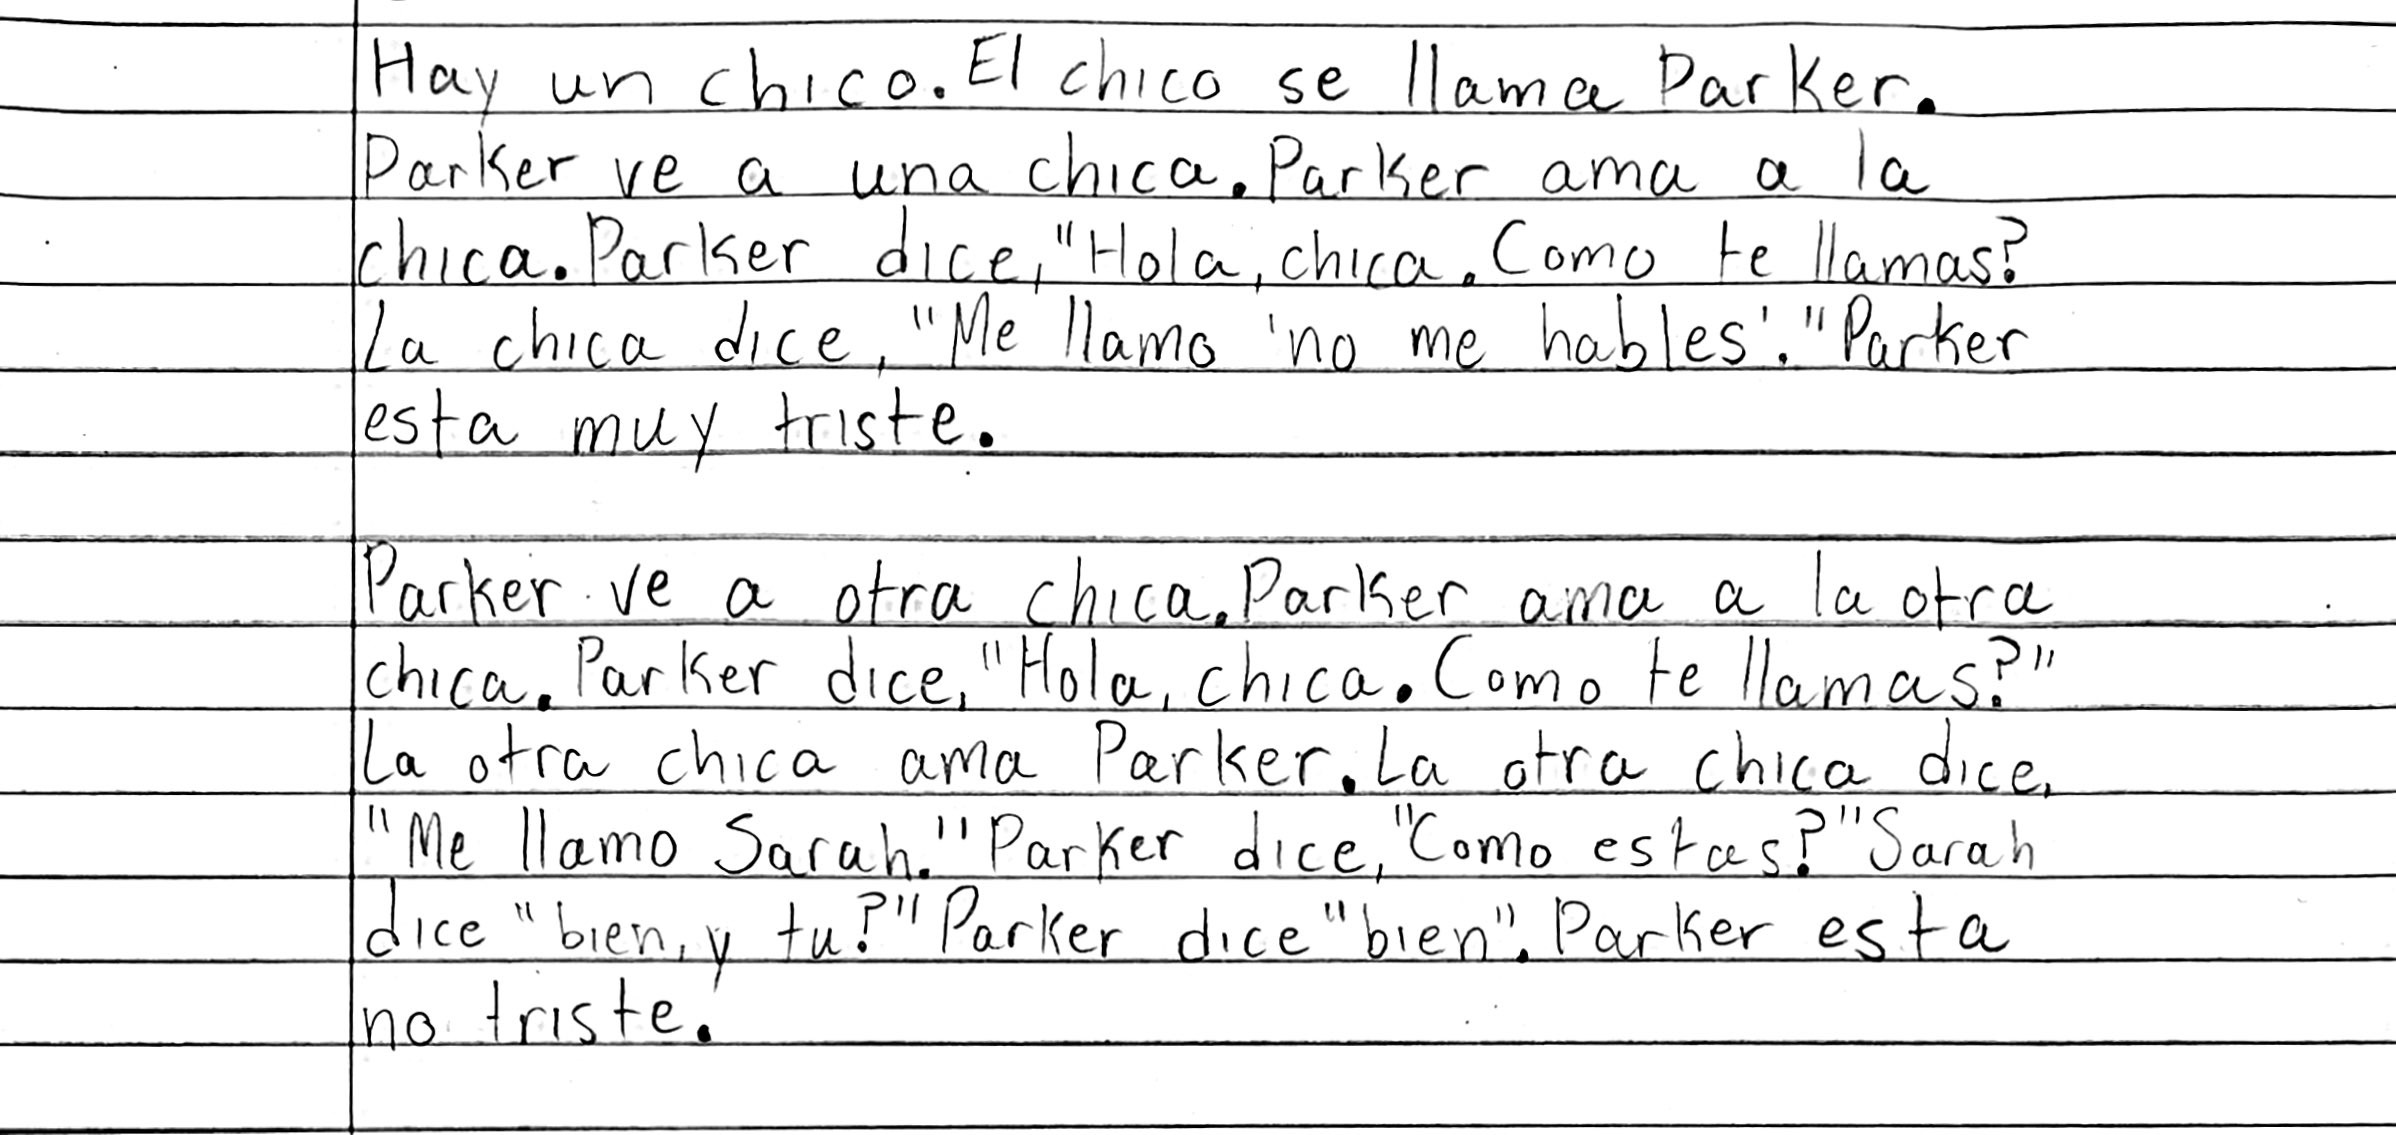 Hay un chico. El chico se llama Parker.
Parker ve a una chica. Parker ama a la
chica. Parker dice, "Hola, chica. Como te llamas?
La chica dice, "Me llamo 'no me hables'." Parker
esta muy triste.
Parker ve a otra chica. Parker ama a la otra
chica. Parker dice, "Hola, chica. Como te llamas?"
La otra chica ama Parker. La otra chica dice,
"Me llamo Sarah." Parker dice, "Como estas?" Sarah
dice "bien, y tu?" Parker dice "bien". Parker esta
no triste.